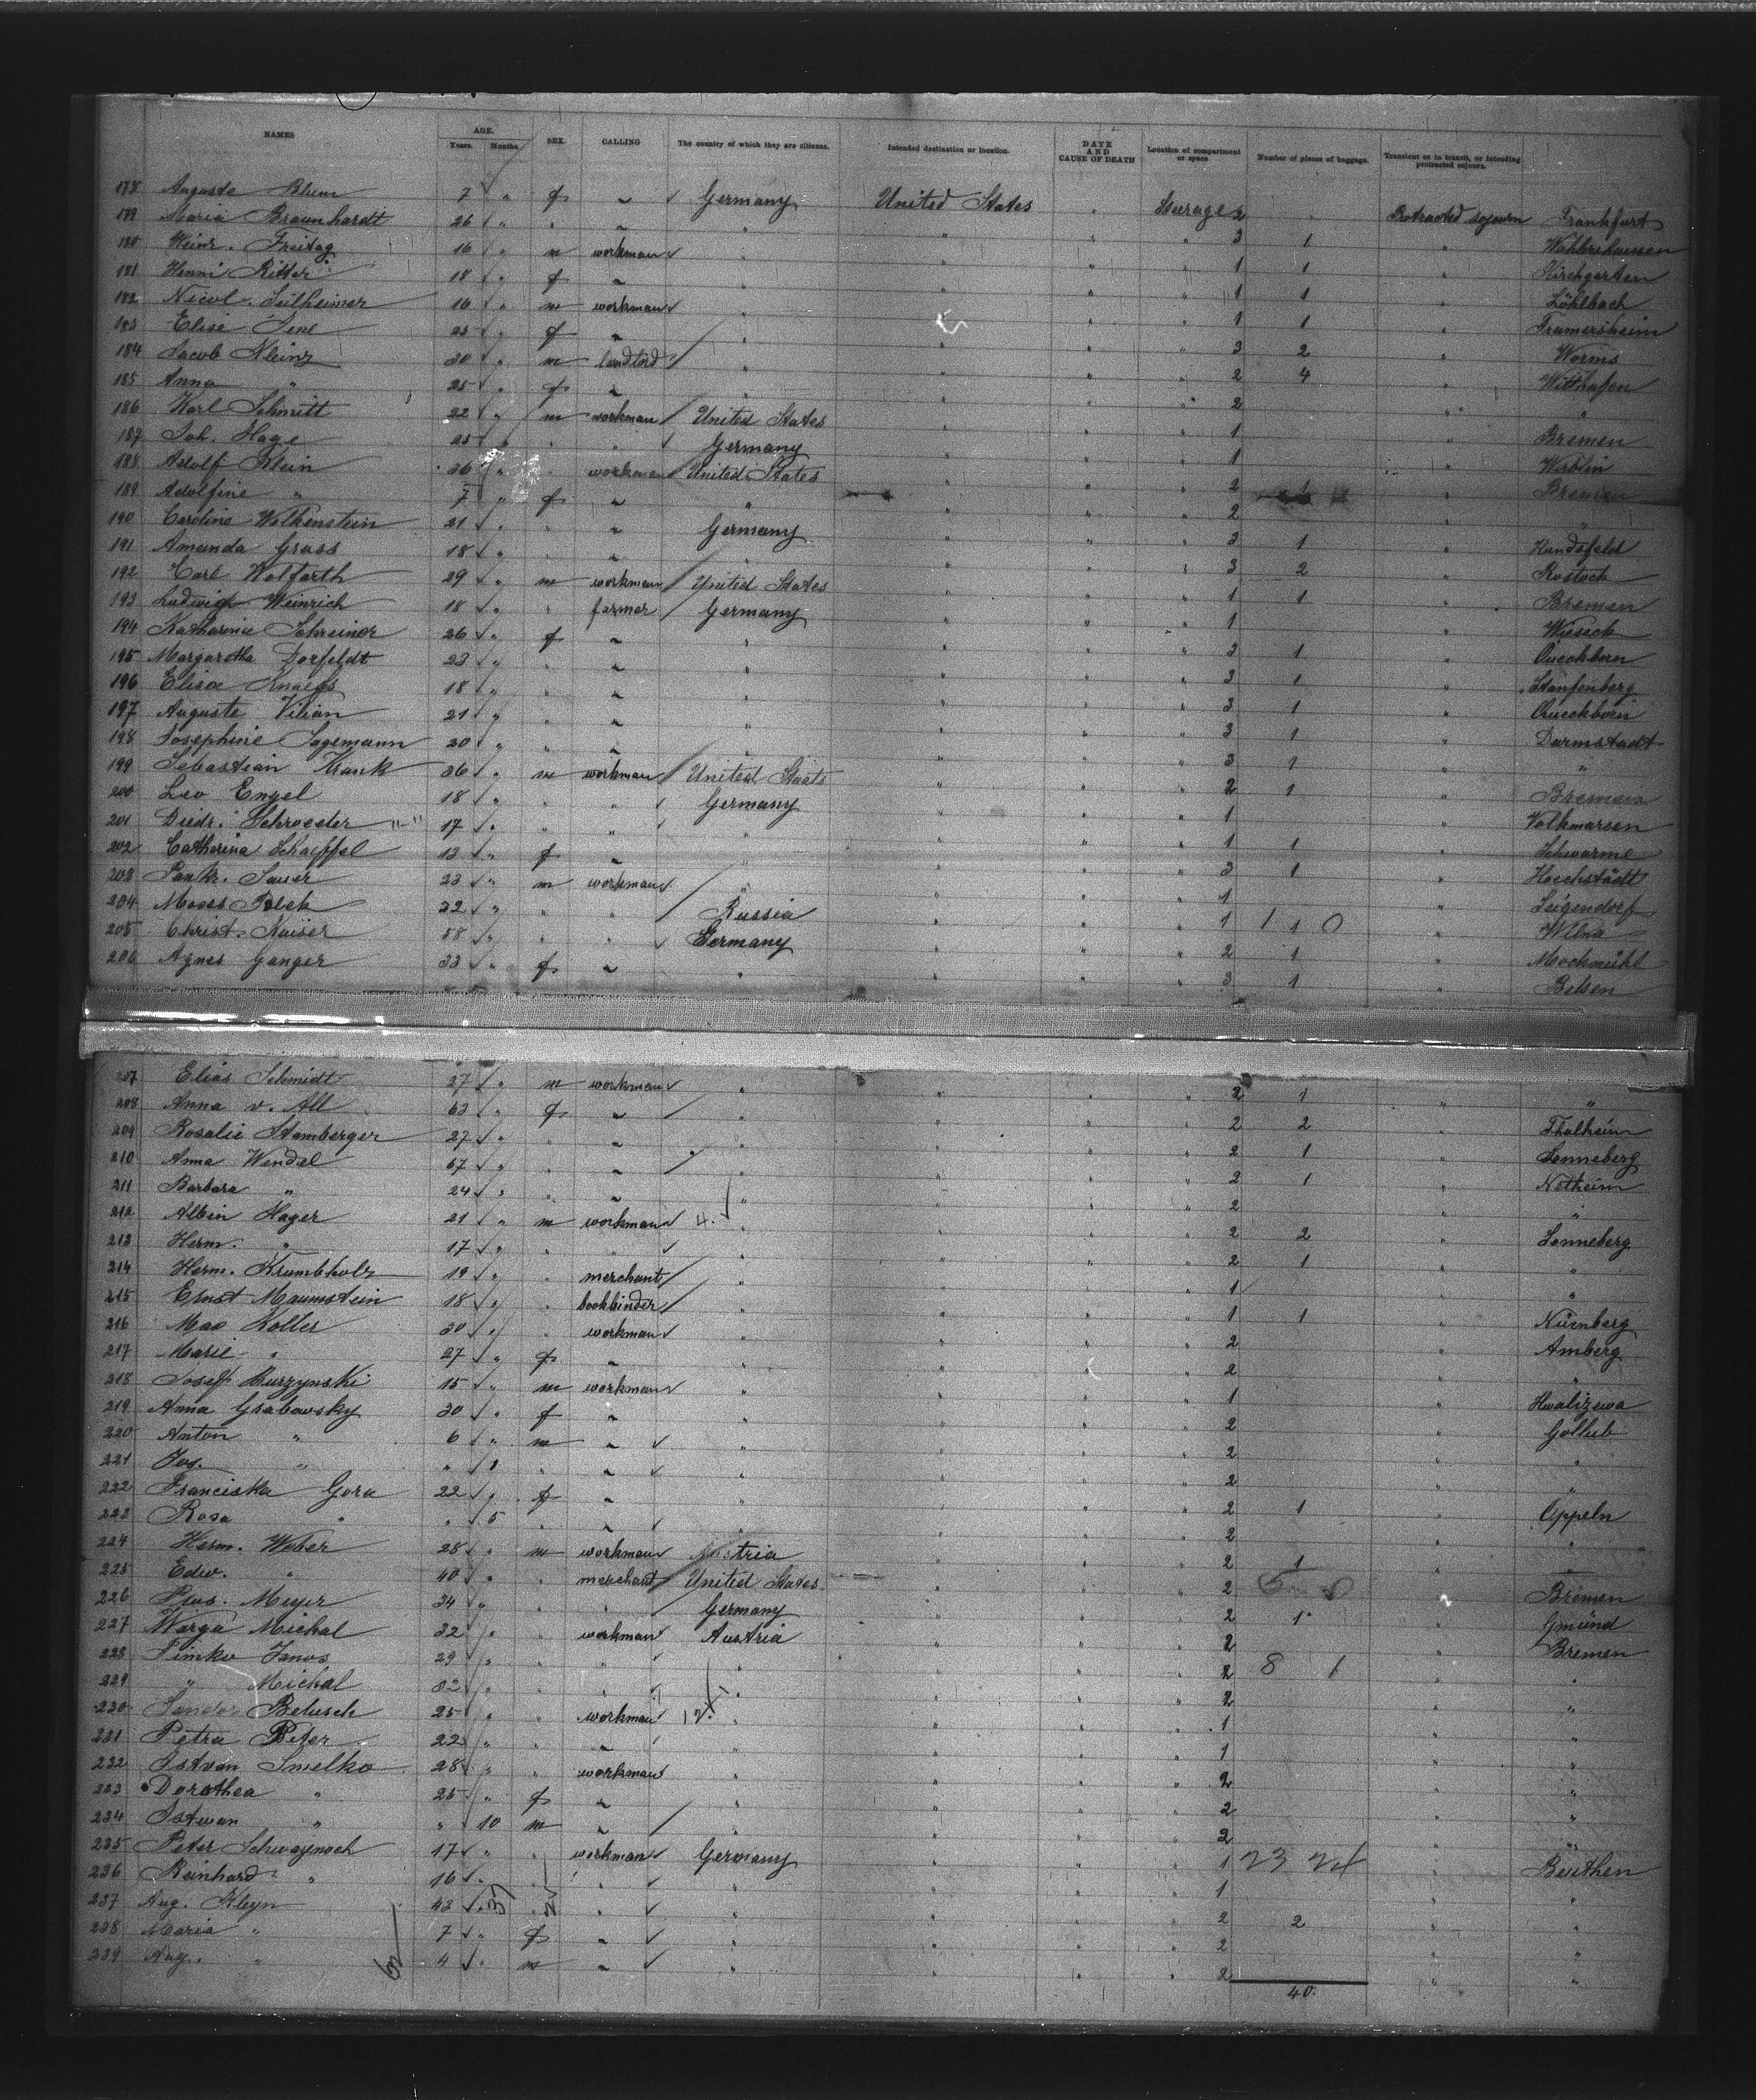 NAMES AGE. Years. Months. SEX. CALLING The country of which they are citizens. Intended destination or location. DATE AND CAUSE OF DEATH Location of compartment or space Number of pieces of baggage. Transient or in transit, or intending protracted sojourn.
178 Auguste Blum 7 " f ~ Germany United States " Steerage 2 " Protracted sojourn Frankfurt
179 Maria Braunhardt 26 " " ~ " " " " 3 1 " Wahlershausen
180 Heinr. Freitag 16 " m workman " " " " 1 1 " Kirchgarten
181 Henni Ritter 18 " f ~ " " " " 1 1 " Löhlbach
182 Nicol. 16 " m workman " " " " 1 1 " Framersheim
183 Elise 25 " f ~ " " " " 3 2 " Worms
184 Jacob Kleinz 30 " m landlord " " " " 2 4 " Witthafen
185 Anna " 25 " f ~ " " " " 2 " "
186 Karl Schmitt 22 " m workman United States " " " 1 " Bremen
187 Joh. Hage 25 " " " Germany " " " 1 "
188 Adolf Klein 36 " " workman United States " " " 2 1 " Bremen
189 Adolfine " 7 " f ~ " " " " 2 " "
190 Caroline Wolkenstein 21 " " ~ Germany " " " 3 1 " Hundsfeld
191 Amanda Grass 18 " " ~ " " " " 3 2 " Rostock
192 Carl Wolfarth 29 " m workman United States " " " 1 1 " Bremen
193 Ludwig Weinrich 18 " " farmer Germany " " " 1 " Wieseck
194 Katharine Schreiner 26 " f ~ " " " " 3 1 " Queckborn
195 Margaretha Dorfeldt 23 " " ~ " " " " 3 1 " Staufenberg
196 Elise 18 " " ~ " " " " 3 1 " Queckborn
197 Auguste Vilian 21 " " ~ " " " " 3 1 " Darmstadt
198 Josephine Sagemann 20 " " ~ " " " " 3 1 " "
199 Sebastian Krank 36 " m workman United States " " " 2 1 " Bremen
200 Leo Engel 18 " " " Germany " " " 1 " Volkmarsen
201 Diedr. Schroeder 17 " " " " " " " 1 1 " Schwarme
202 Catharina Schaeffel 13 " f ~ " " " " 3 1 " Hoechstädt
203 Pankr. Sauer 23 " m workman " " " " 1 "
204 Moses 22 " " " Russia " " " 1 1 1 0 " Wilna
205 Christ. Kaiser 58 " " " Germany " " " 2 1 " Mockmühl
206 Agnes Ganger 33 " f ~ " " " " 3 1 " Belsen
207 Elias Schmidt 27 " m workman " " " " 2 1 " "
208 Anna v. All 63 " f ~ " " " " 2 2 " Thalheim
209 Rosalie Stamberger 27 " " ~ " " " " 2 1 " Sonneberg
210 Anna Wendel 67 " " ~ " " " " 2 1 " Netheim
211 Barbara " 24 " " ~ " " " " 2 " "
212 Albin Hager 21 " m workman 4. " " " " 2 2 " Sonneberg
213 Herm. " 17 " " " " " " " 2 1 " "
214 Herm. Krumbholz 19 " " merchant " " " " 1 " "
215 Ernst Maumstein 18 " " bookbinder " " " " 1 1 " Nürnberg
216 Max Koller 30 " " workman " " " " 2 " Amberg
217 Marie " 27 " f ~ " " " " 2 " "
218 Josef Burzynski 15 " m workman " " " " 1 " Hwalizewa
219 Anna Grabowsky 30 " f ~ " " " " 2 " Gollub
220 Anton " 6 " m ~ " " " " 2 " "
221 Jos. " " 8 " ~ " " " " 2 " "
222 Franciska Gora 22 " f ~ " " " " 2 1 " Oppeln
223 Rosa " " 5 " ~ " " " " 2 " "
224 Herm. Weber 28 " m workman Austria " " " 2 1 "
225 Edw. " 40 " " merchant United States " " " 2 " Bremen
226 Meyer 34 " " " Germany " " " 2 1 " Gmünd
227 Warga Michal 32 " " workman Austria " " " 2 " Bremen
228 Timko Janos 29 " " " " " " " 2 8 1 " "
229 " Michal 32 " " " " " " " 2 " "
230 Sandor Belusch 25 " " workman 12. " " " " 1 " "
231 Petra Peter 22 " " ~ " " " " 1 " "
232 Istvan Smelko 28 " " workman " " " " 2 " "
233 Dorothea " 25 " f ~ " " " " 2 " "
234 Istwan " " 10 m ~ " " " " 2 " "
235 Peter Schwaynoch 17 " " workman Germany " " " 1 23 24 " Beuthen
236 Reinhard " 16 " " " " " " " 1 " "
237 Aug. Kleyn 43 " " " " " " " 2 2 " "
238 Maria " 7 " f ~ " " " " 2 " "
239 Aug. " 4 " m ~ " " " " 2 " "
40.